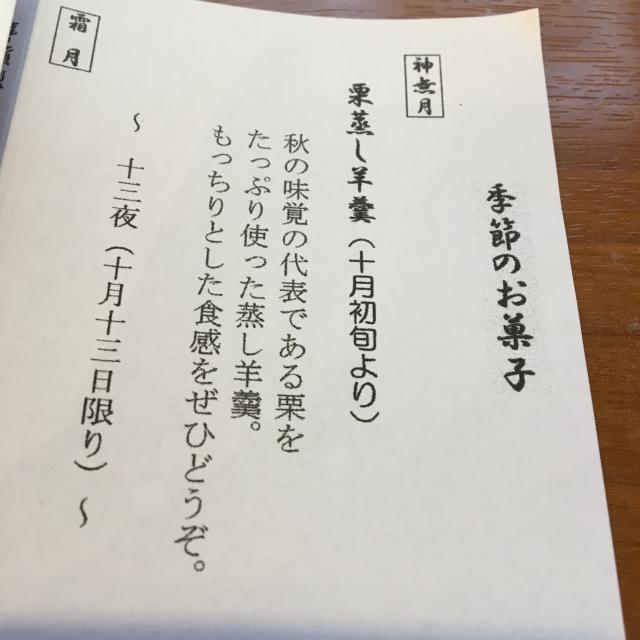 季節のお菓子
神無月
栗蒸し羊羹（十月初旬より）
秋の味覚の代表である栗を
たっぷり使った蒸し羊羹。
もっちりとした食感をぜひどうぞ。
～ 十三夜（十月十三日限り）～
霜月